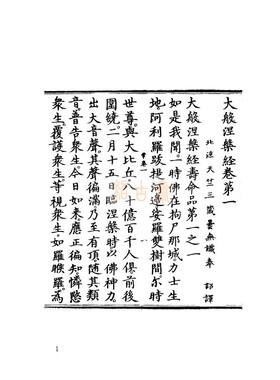 大般涅槃經卷第一
北涼天竺三藏曇無讖奉 詔譯
大般涅槃經壽命品第一之一
如是我聞一時佛在拘尸那城力士生
地阿利羅跋提河邊娑羅雙樹間爾時
世尊與大比丘八十億百千人俱前後
圍繞二月十五日臨涅槃時以佛神力
出大音聲其聲徧滿乃至有頂隨其類
音普告衆生今日如來應正徧知憐愍
衆生覆護衆生等視衆生如羅睺羅為